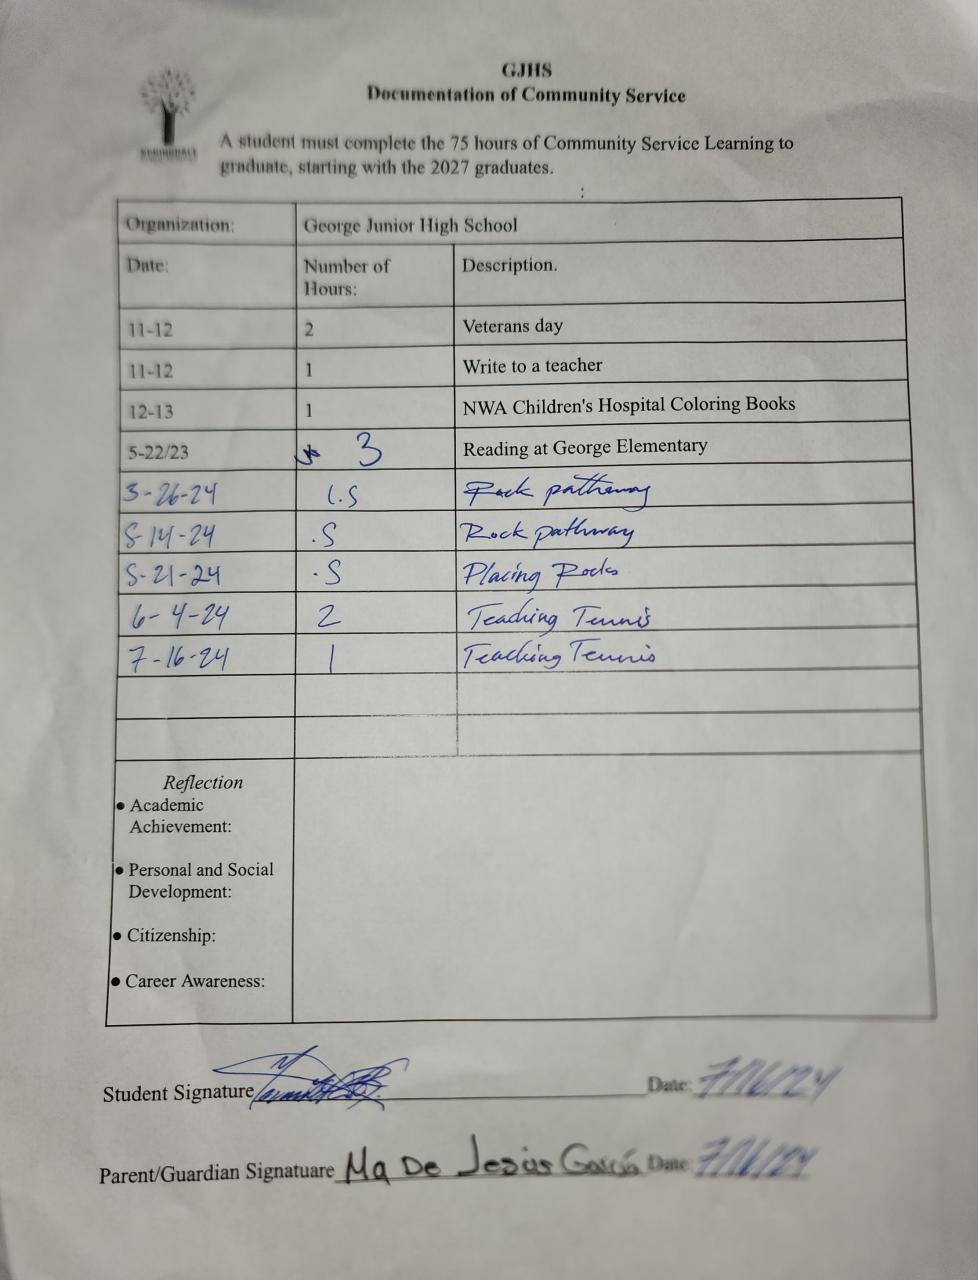 GJHS
Documentation of Community Service
A student must complete the 75 hours of Community Service Learning to
graduate, starting with the 2027 graduates.
Organization: George Junior High School
Date: Number of Hours: Description.
11-12 2 Veterans day
11-12 1 Write to a teacher
12-13 1 NWA Children's Hospital Coloring Books
5-22/23 3 Reading at George Elementary
3-26-24 1.5 Rock pathway
5-14-24 .5 Rock pathway
5-21-24 .5 Placing Rocks
6-4-24 2 Teaching Tennis
7-16-24 1 Teaching Tennis
Reflection
• Academic
Achievement:
• Personal and Social
Development:
• Citizenship:
• Career Awareness:
Student Signature Date: 7/16/24
Parent/Guardian Signatuare Ma De Jesús García Date: 7/16/24